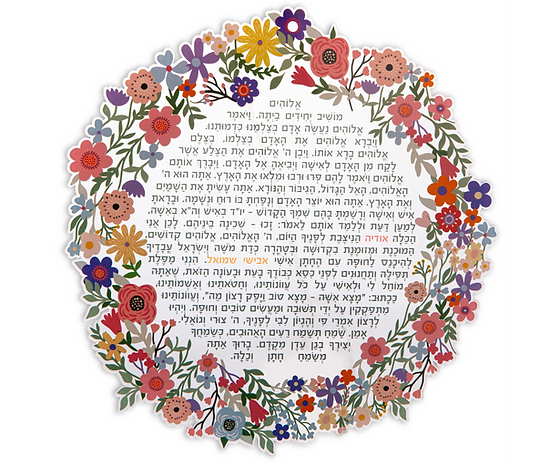 אֱלוֹהִים
מוֹשִׁיב יְחִידִים בַּיְתָה. וַיֹּאמֶר
אֱלוֹהִים נַעֲשֶׂה אָדָם בְּצַלְמֵנוּ כִּדְמוּתֵנוּ.
וַיִּבְרָא אֱלוֹהִים אֶת הָאָדָם בְּצַלְמוֹ, בְּצֶלֶם
אֱלוֹהִים בָּרָא אוֹתוֹ. וַיִּבֶן ה' אֱלוֹהִים אֶת הַצֵּלָע אֲשֶׁר
לָקַח מִן הָאָדָם לְאִישָׁה וַיְבִיאֶהָ אֶל הָאָדָם. וַיְבָרֶךְ אוֹתָם
אֱלוֹהִים וַיֹּאמֶר לָהֶם פְּרוּ וּרְבוּ וּמִלְאוּ אֶת הָאָרֶץ. אַתָּה הוּא ה'
הָאֱלוֹהִים, הָאֵל הַגָּדוֹל, הַגִּיבּוֹר וְהַנּוֹרָא. אַתָּה עָשִׂיתָ אֶת הַשָּׁמַיִם
וְאֶת הָאָרֶץ. אַתָּה הוּא יוֹצֵר הָאָדָם וְנָפַחְתָּ בּוֹ רוּחַ וּנְשָׁמָה. וּבָרָאתָ
אִישׁ וְאִישָׁה וְרָשַׁמְתָּ בָּהֶם שִׁמְךָ הַקָּדוֹשׁ – יוּ"ד בָּאִישׁ וְהֵ"א בָּאִשָּׁה,
לְמַעַן דַּעַת וּלְלַמֵּד אוֹתָם לֵאמֹר: זָכוּ - שְׁכִינָה בֵּינֵיהֶם. לָכֵן אֲנִי
הַכַּלָּה אודיה הַנִּיצֶּבֶת לְפָנֶיךָ הַיּוֹם, ה' הָאֱלוֹהִים, אֱלוֹהִים קְדוֹשִׁים
הַמּוּכֶנֶת וּמְזוּמֶּנֶת בִּקְדוּשָּׁה וּבְטָהֳרָה כְּדַת מֹשֶׁה וְיִשְׂרָאֵל עֲבָדֶיךָ
לְהִיכָּנֵס לַחוּפָּה עִם הֶחָתָן אִישִׁי אבישי שמואל. הִנְנִי מַפֶּלֶת
תְּפִילָּה וְתַחֲנוּנִים לִפְנֵי כִּסֵּא כְּבוֹדֶךָ בָּעֵת וּבָעוֹנָה הַזֹּאת, שֶׁאַתָּה
מוֹחֵל לִי וּלְאִישִׁי עַל כָּל עֲווֹנוֹתֵינוּ, וַחֲטָאֵתֵינוּ וְאַשְׁמוֹתֵינוּ,
כַּכָּתוּב: "מָצָא אִשָּׁה - מָצָא טוֹב וַיָּפֶק רָצוֹן מֵה'", וַעֲווֹנוֹתֵינוּ
מִתְפַּקְּקִין עַל יְדֵי תְּשׁוּבָה וּמַעֲשִׂים טוֹבִים וְחוּפָּה. וְיִהְיוּ
לְרָצוֹן אִמְרֵי פִי וְהֶגְיוֹן לִבִּי לְפָנֶיךָ, ה' צוּרִי וְגוֹאֲלִי.
אָמֵן. שַׂמֵּחַ תְּשַׂמַּח רֵעִים הָאֲהוּבִים, כְּשַׂמֵּחֲךָ
יְצִירְךָ בְּגַן עֵדֶן מִקֶּדֶם. בָּרוּךְ אַתָּה
מְשַׂמֵּחַ חָתָן וְכַלָּה.